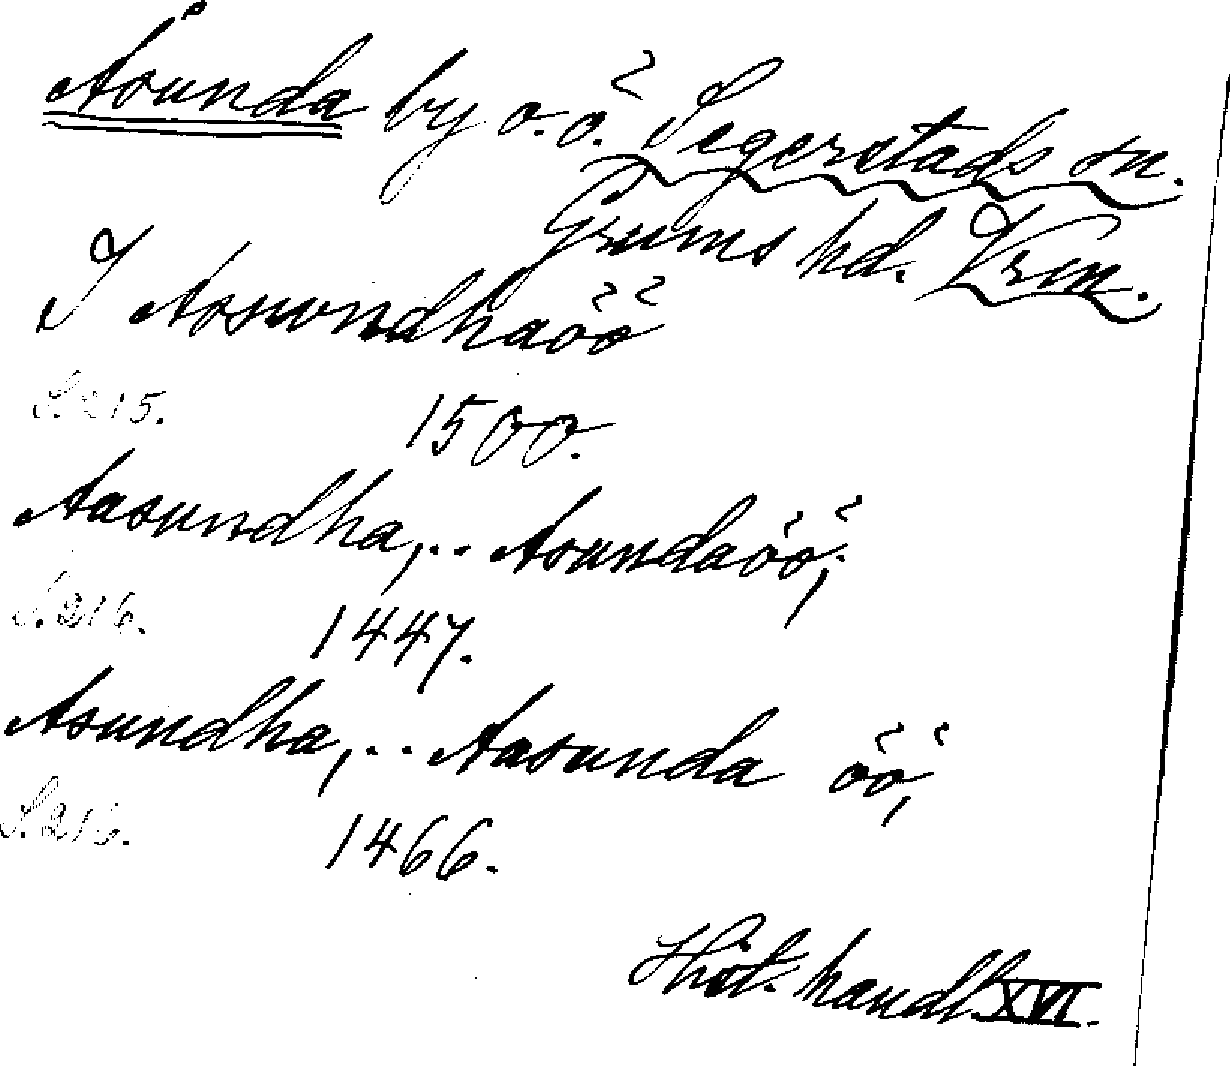 Åsunda by o. ö. Segerstads sn.
Grums hd. Vrm.
I Aoswndhaöö
S. 215. 1500.
Aasundha,.. Asundaöö;
S. 216. 1447.
Asundha,.. Aasunda öö,
S. 216. 1466.
Hist. handl. XVI.